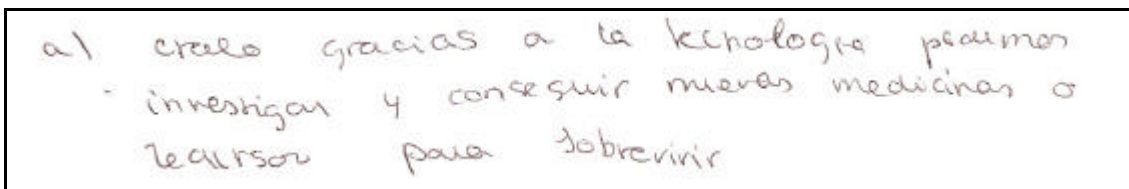 a) creo gracias a la tecnologia podemos
- investigar y conseguir nuevas medicinas o
recursos para sobrevivir